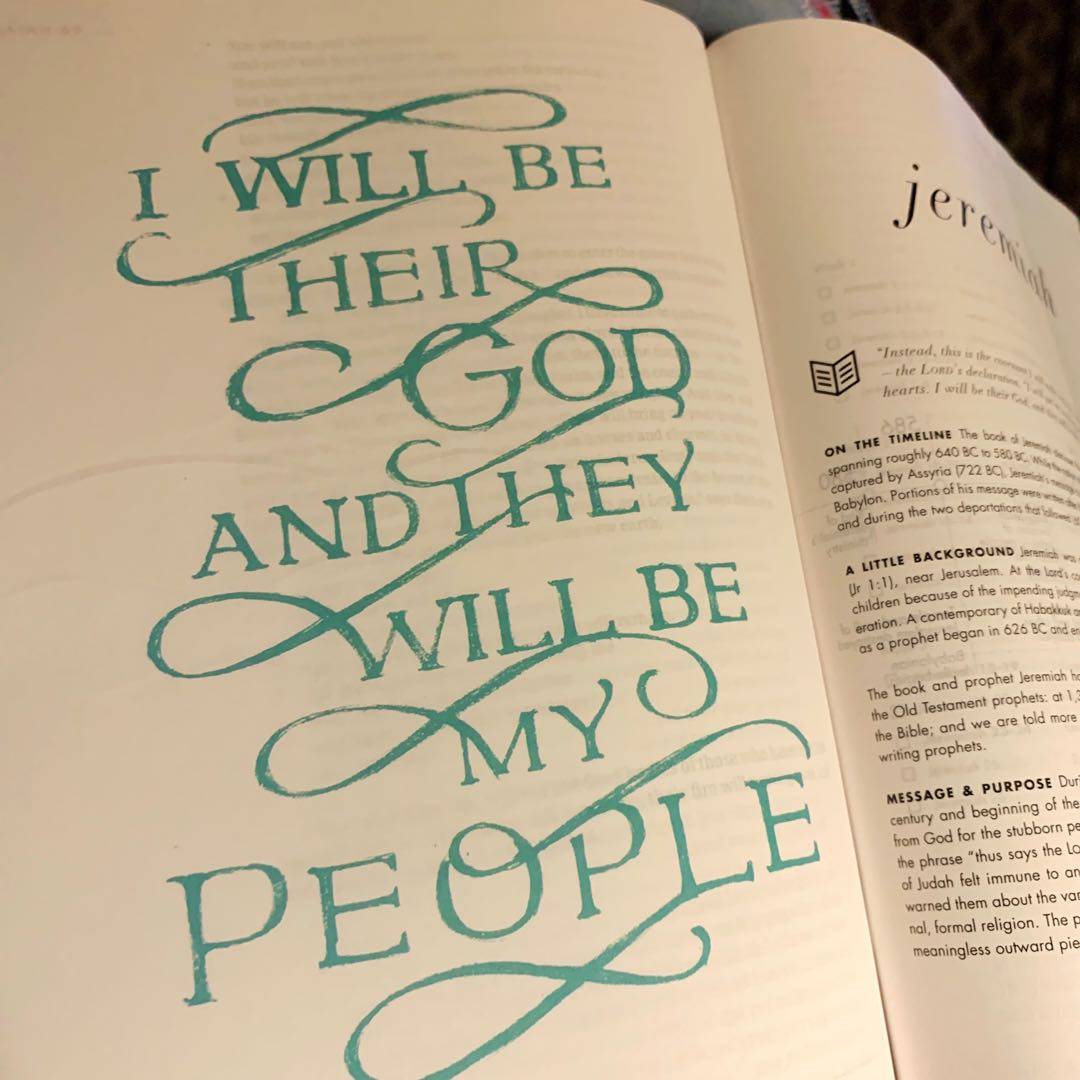 I WILL BE
THEIR
GOD
AND THEY
WILL BE
MY
PEOPLE
jeremiah
"Instead, this is the covenant I will
— the LORD's declaration. "I will
hearts. I will be their God, and
586
ON THE TIMELINE The book of Jeremiah
spanning roughly 640 BC to 580 BC. While the
captured by Assyria (722 BC), Jeremiah's message
Babylon. Portions of his message were written
and during the two deportations that followed
A LITTLE BACKGROUND Jeremiah was
(Jr 1:1), near Jerusalem. At the Lord's
children because of the impending
eration. A contemporary of Habakkuk
as a prophet began in 626 BC and
The book and prophet Jeremiah
the Old Testament prophets: at
the Bible; and we are told more
writing prophets.
MESSAGE & PURPOSE
century and beginning of the
from God for the stubborn
the phrase "thus says the
of Judah felt immune to
warned them about the
nal, formal religion. The
meaningless outward